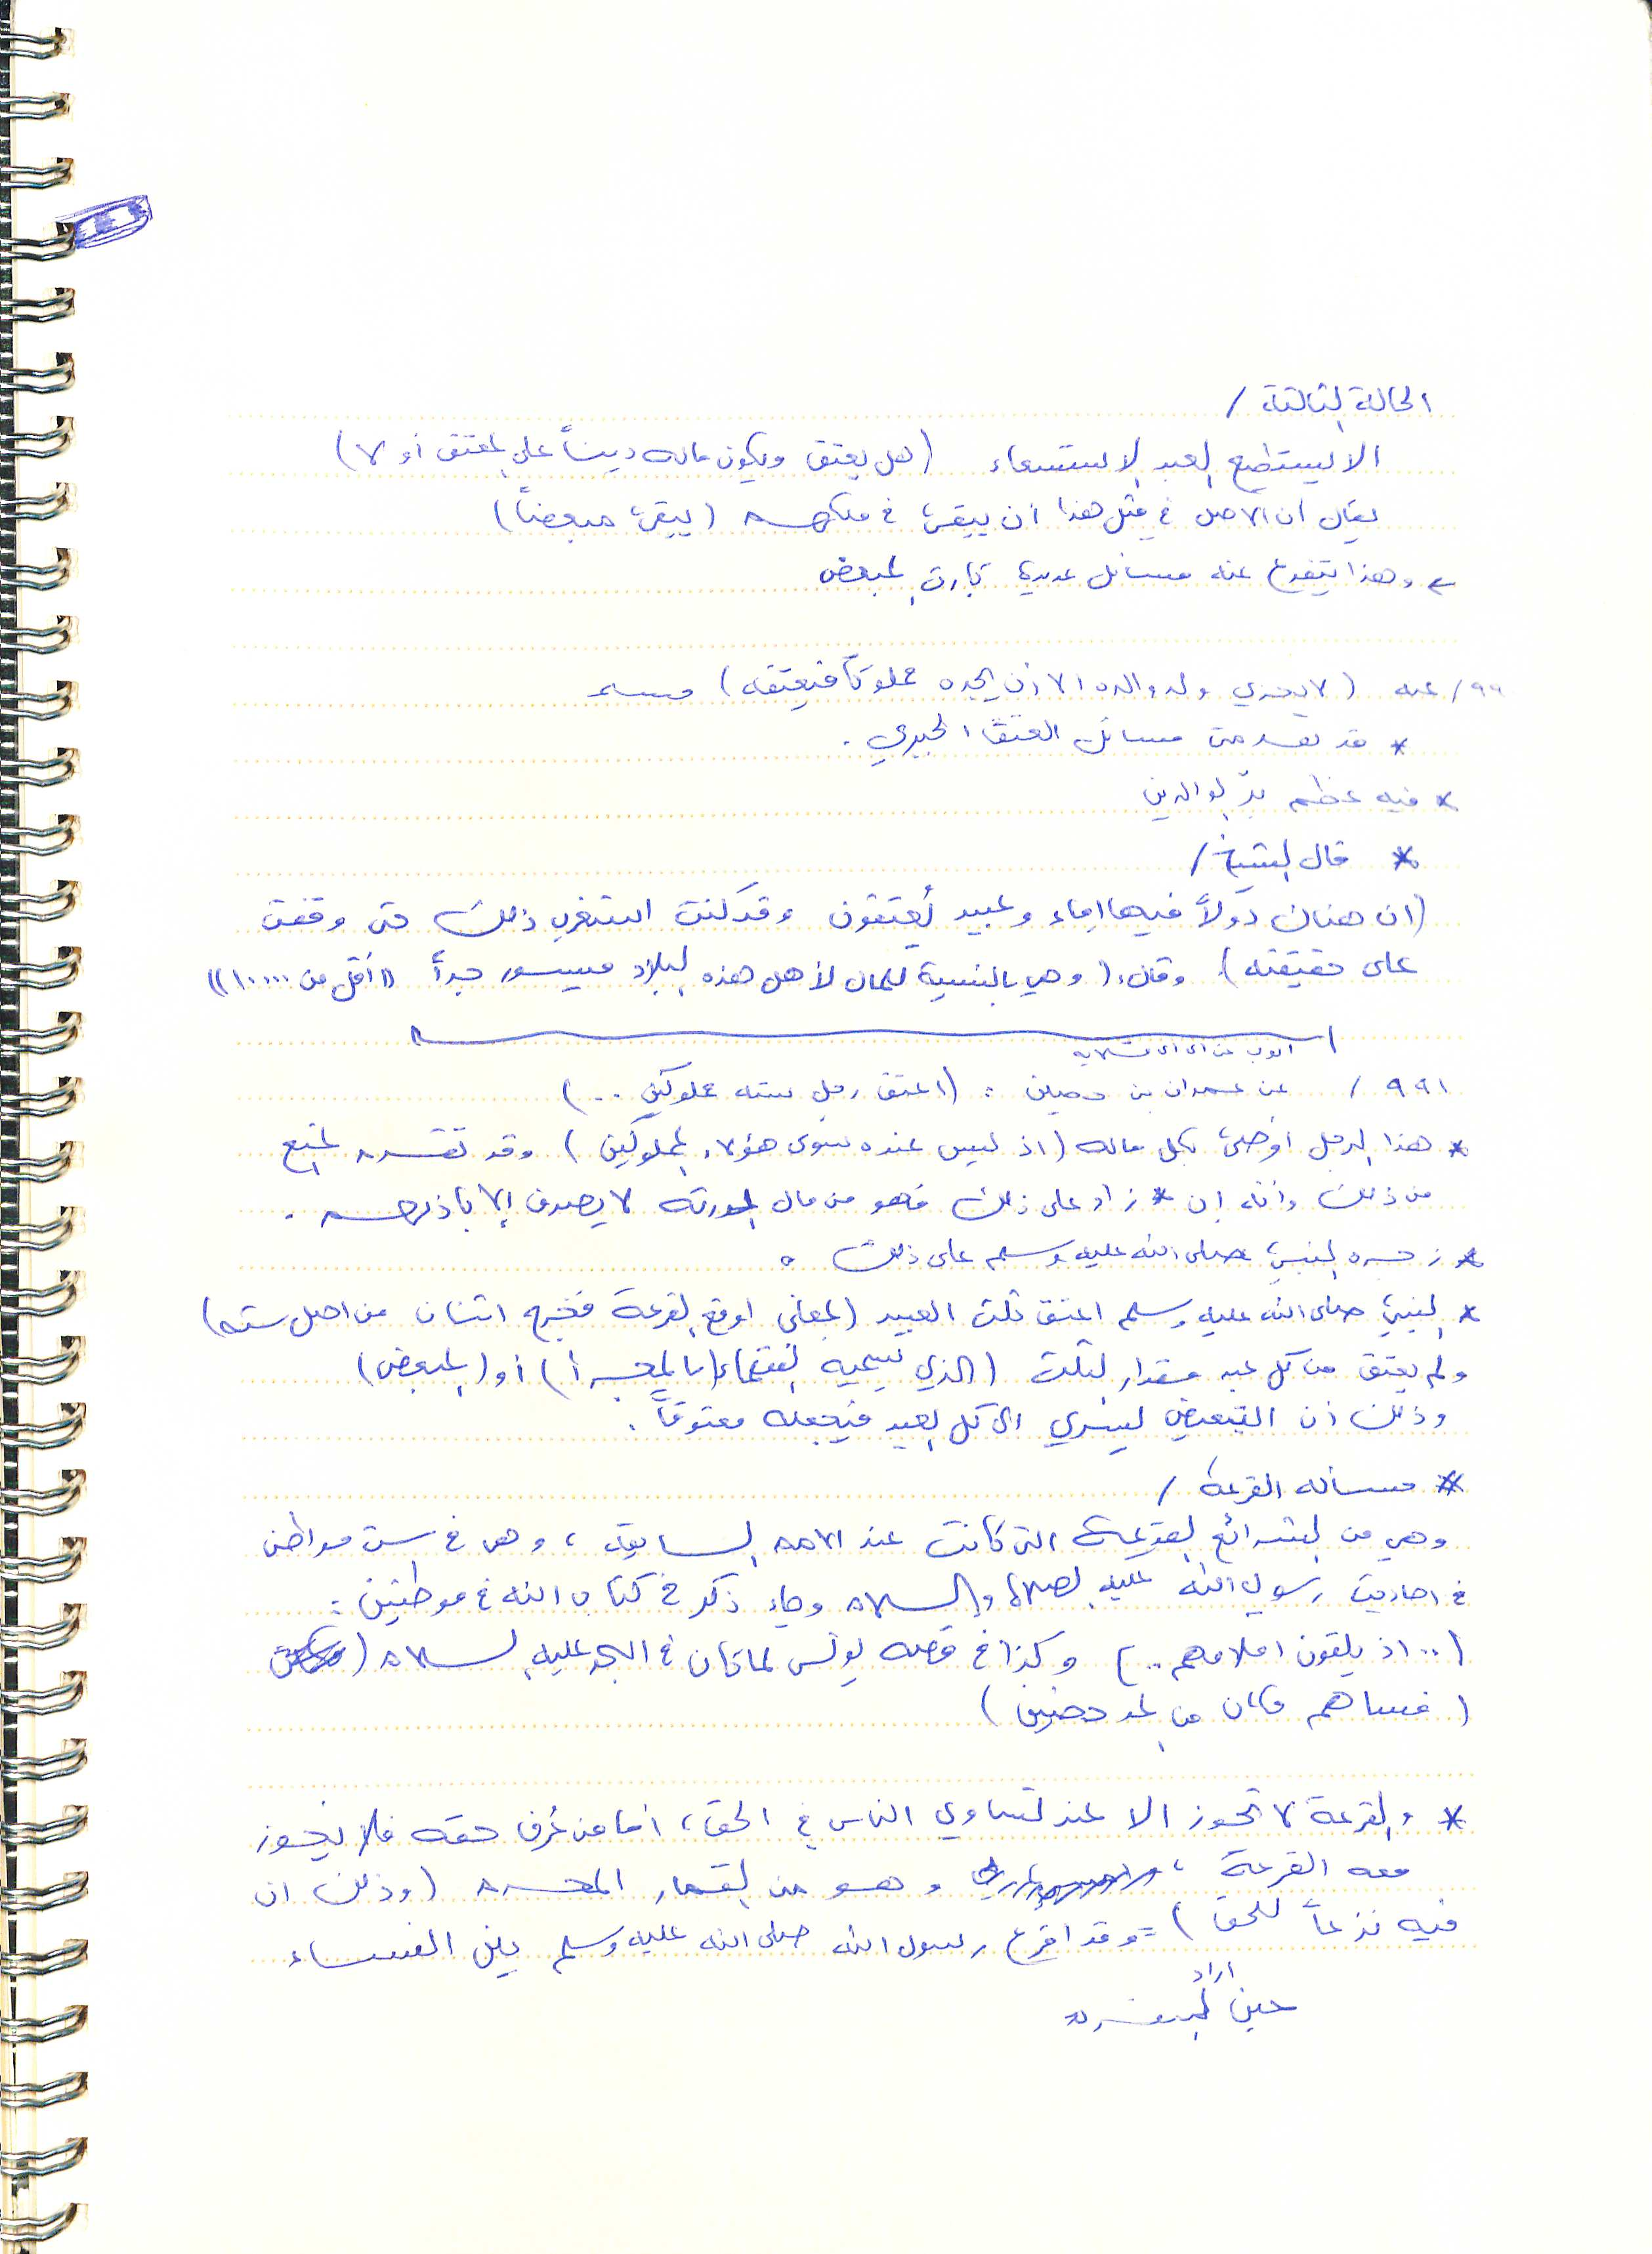 الحالة الثالثة /
الا يستطيع العبد الاستسعاء (هل يعتق ويكون ماله ديناً على المعتق أو لا)
يقال ان الاصل في مثل هذا أن يبقى في ملكهم (يبقى مبعضاً)
وهذا يتفرع عنه مسائل عديدة كإرث المبعض
عنه (لا يجزي ولد والده الا أن يجده مملوكاً فيعتقه) مسلم
* قد يعد من مسائل العتق الجبري .
* فيه عظم برّ الوالدين
* قال الشيخ /
(ان هناك دولاً فيها إماء وعبيد يُعتقون وقد كنت استغرب ذلك حتى وقفت
على حقيقته) وقال: (وهي بالنسبة للمال لأهل هذه البلاد ميسور جداً ((أقل من ١٠٠٠٠))
٩٩١ / عن عمران بن حصين : (اعتق رجل ستة مملوكين ..)
* هذا الرجل أوصى بكل ماله (اذ ليس عنده سوى هؤلاء المملوكين) وقد تقدم المنع
من ذلك وأنه إن زاد على ذلك فهو من مال الورثة لا يصرف إلا بإذنهم .
* زجره النبي صلى الله عليه وسلم على ذلك .
* النبي صلى الله عليه وسلم اعتق ثلث العبيد (بمعنى اوقع القرعة فخرج اثنان من اصل ستة)
ولم يعتق من كل عبد مقدار الثلث (الذي يسميه الفقهاء (بالمجزأ) أو (المبعض)
وذلك أن التبعيض ليسري الى كل العبد فيجعله معتوقاً .
* مسألة القرعة /
وهي من الشرائع القديمة التي كانت عند الامم السابقة ، وهي في ست مواطن
في احاديث رسول الله عليه الصلاة والسلام وجاء ذكر في كتاب الله في موطنين :
(.. اذ يلقون اقلامهم ..) وكذا في قصة يونس لما كان في البحر عليه السلام
(فساهم فكان من المدحضين)
* والقرعة لا تجوز الا عند تساوي الناس في الحق ، أما من عُرف حقه فلا يجوز
معه القرعة ، وهو من القمار المحرم (وذلك ان
فيه نزعاً للحق) = وقد اقرع رسول الله صلى الله عليه وسلم بين النساء
حين اراد السفر